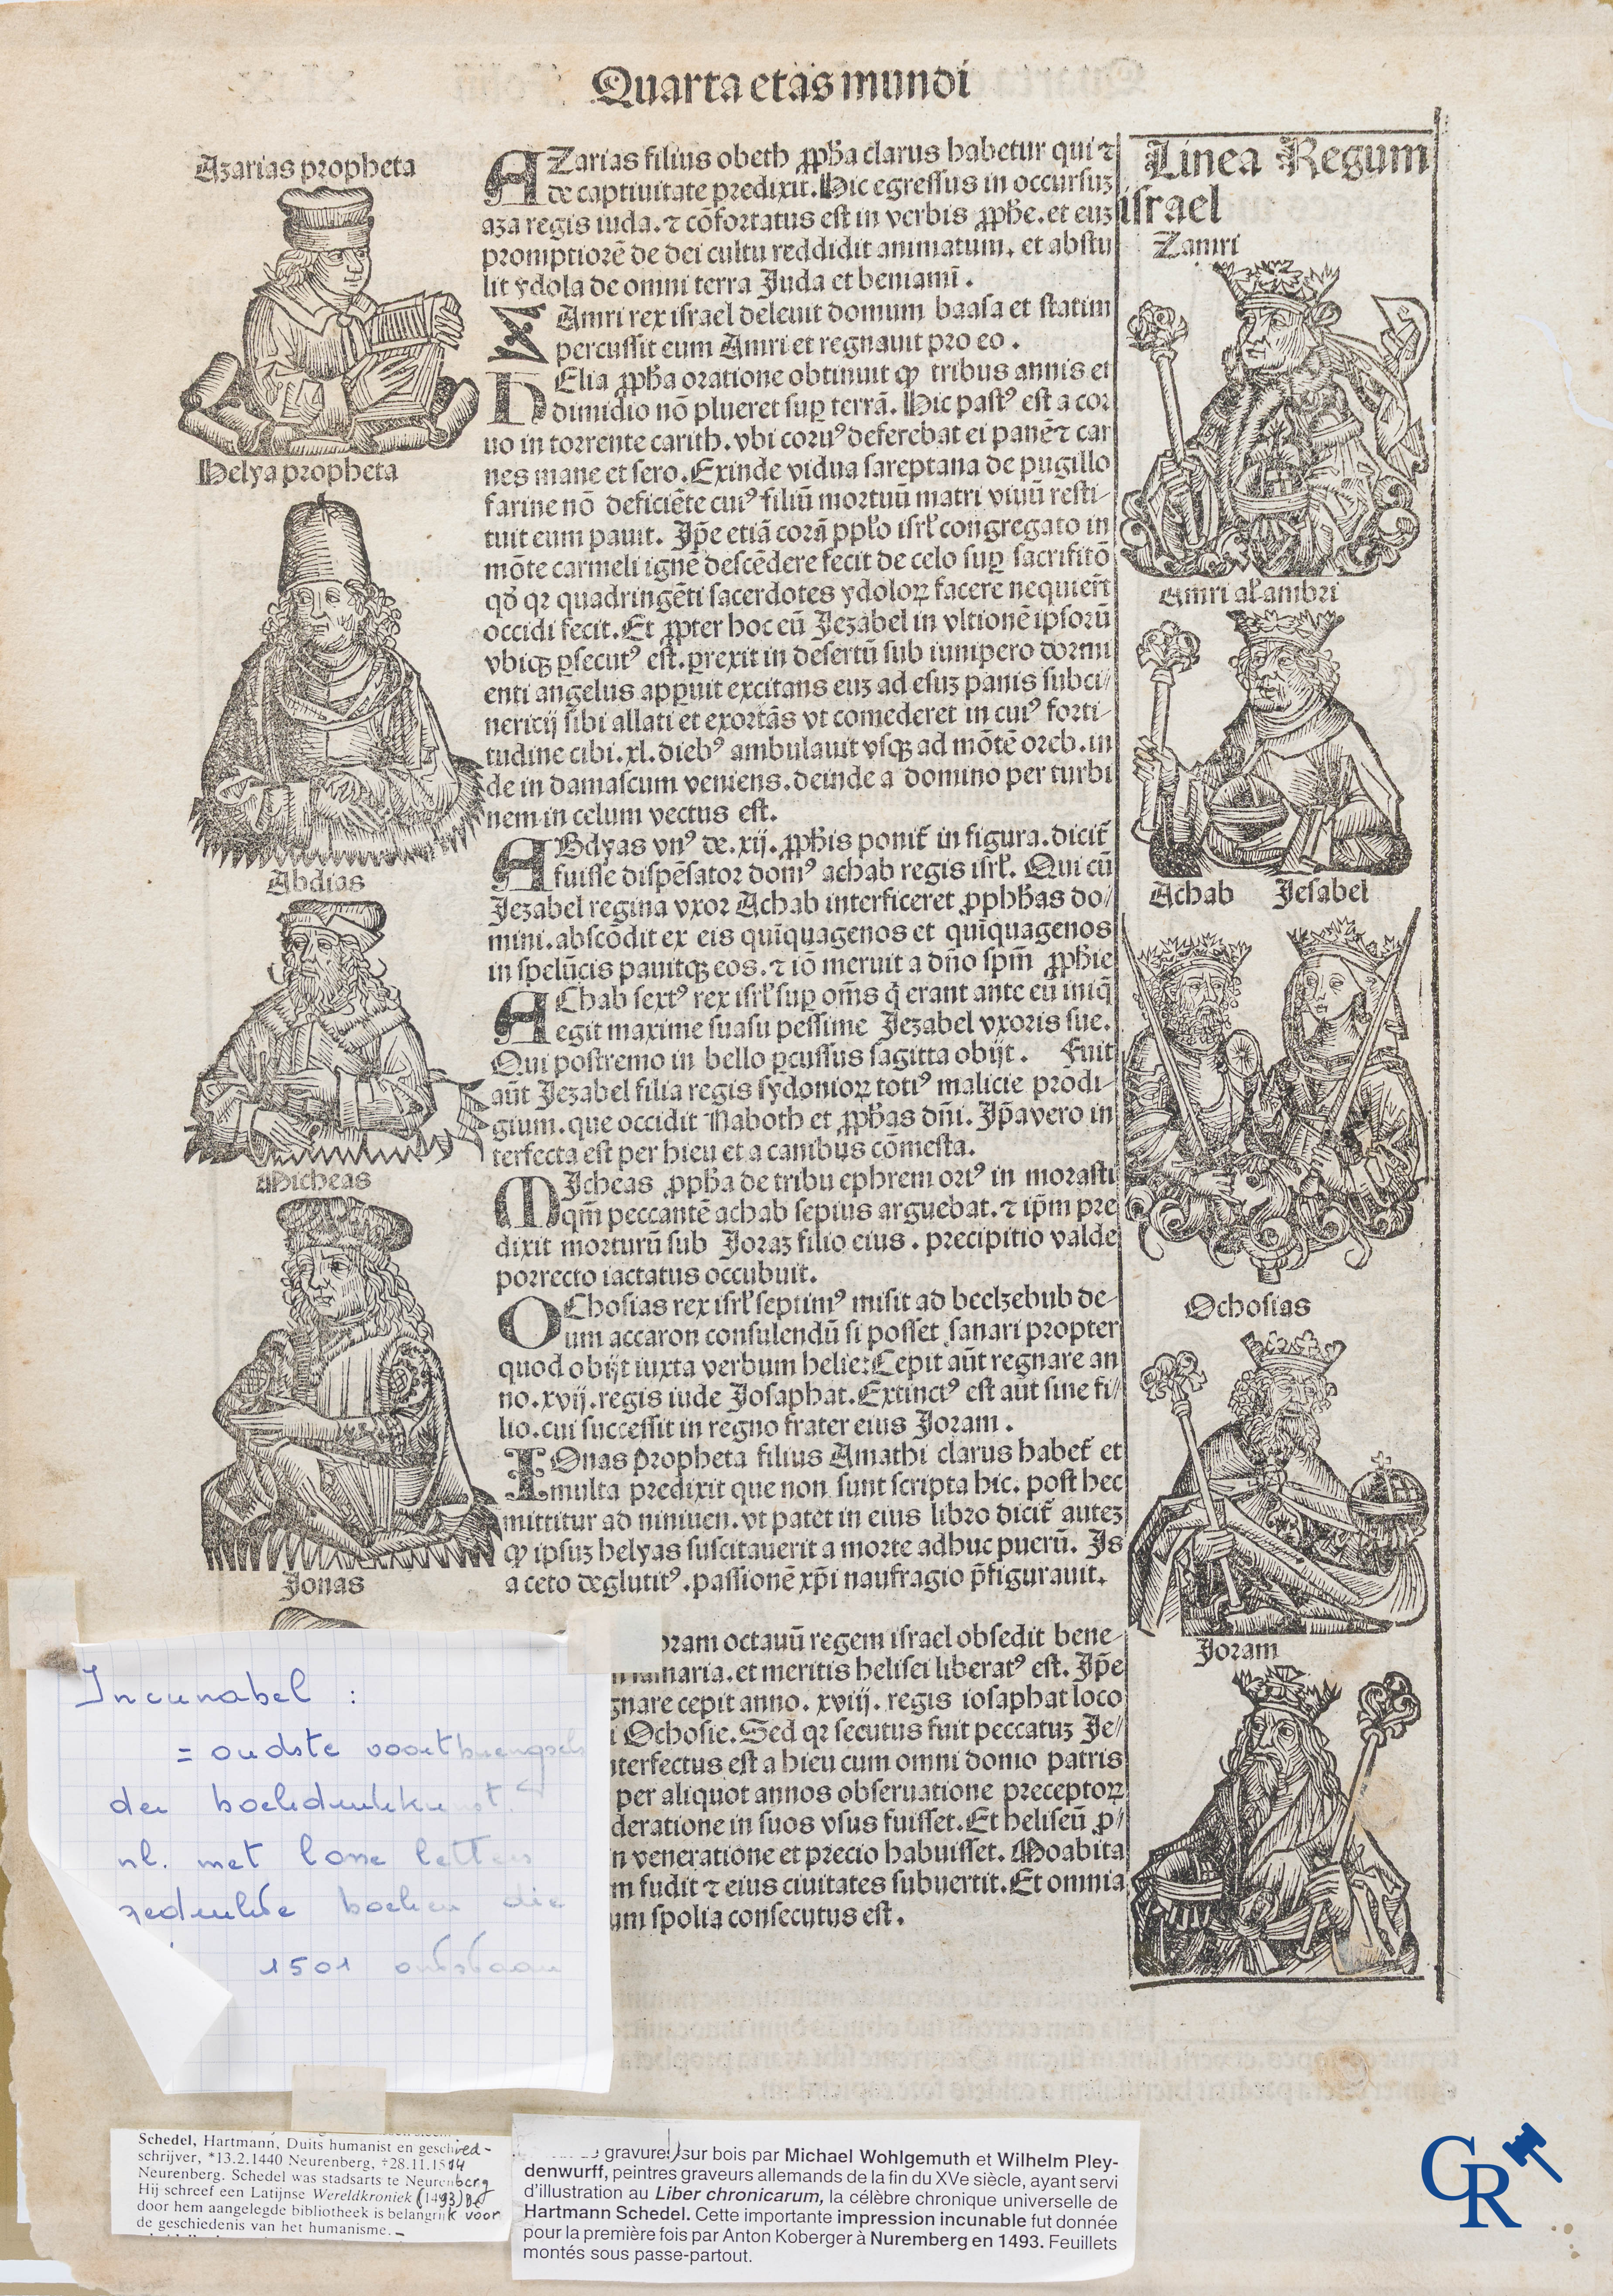 Quarta etas mundi
Azarias propheta
Helya propheta
Abdias
Micheas
Jonas
AZarias filius obeth ꝓpħa clarus habetur qui ⁊
de captiuitate predixit. Hic egressus in occursuz
aza regis iuda. ⁊ cōfortatus est in verbis ꝓpħe. et euz
promptiorē de dei cultu reddidit animatum. et abstu
lit ydola de omni terra Juda et beniami̅.
ZAmri rex israel deleuit domum baasa et statim
percussit eum Amri et regnauit pro eo.
HElia ꝓpħa oratione obtinuit ꝙ tribus annis et
dimidio nō plueret sup terrā. Hic pastꝰ est a cor
uo in torrente carith. vbi coruꝰ deferebat ei panē ⁊ car
nes mane et sero. Exinde vidua sareptana de pugillo
farine nō deficiēte cuiꝰ filiū mortuū matri viuū resti-
tuit eum pauit. Jp̄e etiā corā ppło isrł congregato in
mōte carmeli ignē descēdere fecit de celo sup sacrifitō
qd̄ qꝛ quadringēti sacerdotes ydoloꝝ facere nequier̄t
occidi fecit. Et ꝓpter hoc eū Jezabel in vltionē ipsorū
vbiqꝫ ꝑsecutꝰ est. prexit in desertū sub iunipero dormi
enti angelus apparuit excitans euz ad esuz panis subci-
nericij sibi allati et exortās vt comederet in cuiꝰ forti-
tudine cibi. xl. diebꝰ ambulauit vsqꝫ ad mōtē oreb. in
de in damascum veniens. deinde a domino per turbi
nem in celum vectus est.
ABdyas vnꝰ de. xij. ꝓpħis ponit̄ in figura. dicit̄
fuisse dispēsator domꝰ achab regis isrł. Qui cū
Jezabel regina vxor Achab interficeret ꝓphħas do-
mini. abscōdit ex eis qui̅quagenos et qui̅quagenos
in spelūcis pauitqꝫ eos. ⁊ iō meruit a dn̄o spm̄ ꝓpħie
AChab sextꝰ rex isrł sup om̄s q̄ erant ante eū iniq̄
egit maxime suasu pessime Jezabel vxoris sue.
Qui postremo in bello ꝑcussus sagitta obijt. Fuit
aūt Jezabel filia regis sydonioꝝ totiꝰ malicie prodi-
gium. que occidit Naboth et ꝓpħas dn̄i. Jp̄a vero in
terfecta est per hieu et a canibus cōmesta.
MJcheas ꝓpħa de tribu ephrem oriꝰ in morasti
qm̄ peccantē achab sepius arguebat. ⁊ ip̄m pre
dixit morturū sub Joraz filio eius. precipitio valde
porrecto iactatus occubuit.
OChosias rex isrł septimꝰ misit ad beelzebub de-
um accaron consulendū si posset sanari propter
quod obijt iuxta verbum helie: Cepit aūt regnare an
no. xvij. regis iude Josaphat. Extinctꝰ est aūt sine fi-
lio. cui successit in regno frater eius Joram.
IOnas propheta filius Amathi clarus habet̄ et
multa predixit que non sunt scripta hic. post hec
mittitur ad niniuen. vt patet in eius libro dicit̄ autez
ꝙ ipsuz helyas suscitauerit a morte adhuc puerū. Js
a ceto deglutitꝰ. passionē xp̄i naufragio p̄figurauit.
oram octauū regem israel obsedit bene-
maria. et meritis helisei liberatꝰ est. Jp̄e
gnare cepit anno. xviij. regis iosaphat loco
i Ochosie. Sed qꝛ secutus fuit peccatuz Je-
nterfectus est a hieu cum omni domo patris
per aliquot annos obseruatione preceptoꝝ
deratione in suos vsus fuisset. Et heliseū ꝓ-
n veneratione et precio habuisset. Moabita
m fudit ⁊ eius ciuitates subuertit. Et omnia
um spolia consecutus est.
Linea Regum
israel
Zamri
Amri al' ambri
Achab Jesabel
Ochosias
Joram
Incunabel :
= oudste voortbrengsels
der boekdrukkunst
nl. met losse letters
gedrukte boeken die
1501 ontstaan
Schedel, Hartmann, Duits humanist en geschied-
schrijver, *13.2.1440 Neurenberg, †28.11.1514
Neurenberg. Schedel was stadsarts te Neurenberg
Hij schreef een Latijnse Wereldkroniek (1493) De
door hem aangelegde bibliotheek is belangrijk voor
de geschiedenis van het humanisme.
gravure sur bois par Michael Wohlgemuth et Wilhelm Pley-
denwurff, peintres graveurs allemands de la fin du XVe siècle, ayant servi
d'illustration au Liber chronicarum, la célèbre chronique universelle de
Hartmann Schedel. Cette importante impression incunable fut donnée
pour la première fois par Anton Koberger à Nuremberg en 1493. Feuillets
montés sous passe-partout.
CR